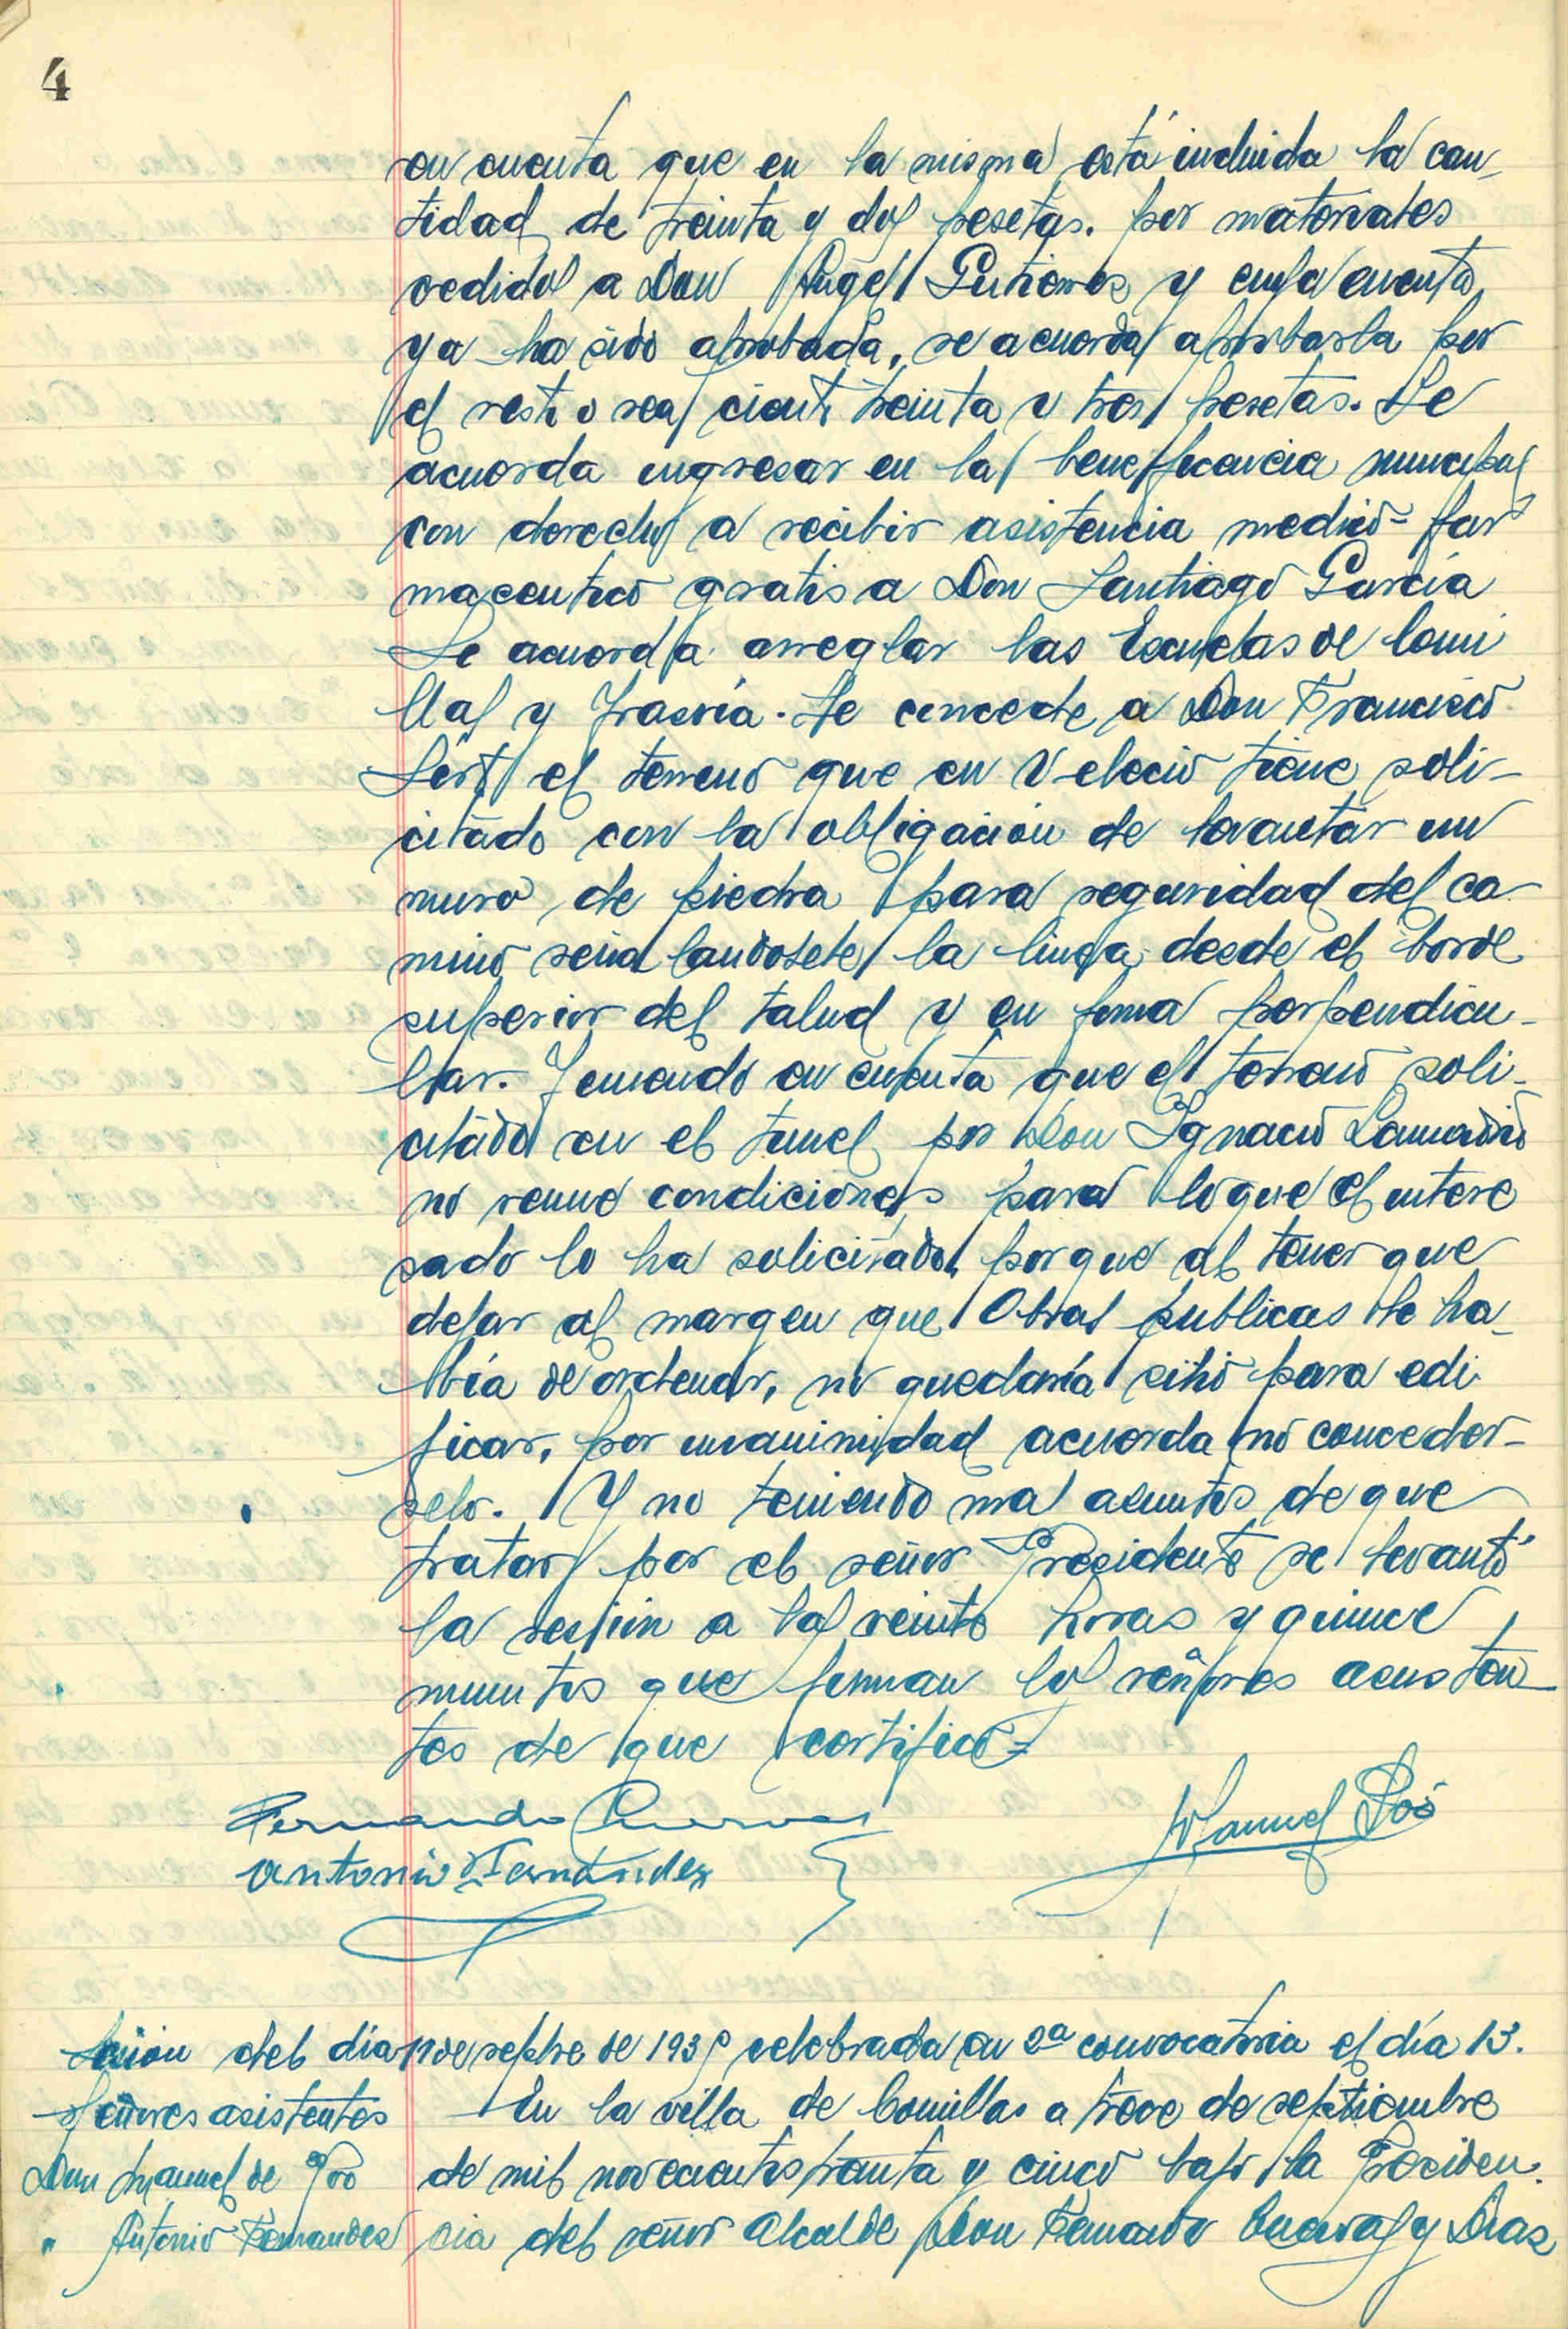 4
en cuenta que en la misma está incluida la can-
tidad de treinta y dos pesetas. por materiales
cedidos a Don Angel Gutierres y cuya cuenta
ya ha sido aprobada, se acuerda aprobarla por
el resto o sea ciento treinta y tres pesetas. Se
acuerda ingresar en la beneficencia municipal
con derecho a recibir asistencia medico-far
maceutico gratis a Don Santiago García
Se acuerda arreglar las Escuelas de Comi
llas y Trasvía. Se concede a Don Francisco
Sert el terreno que en Velecio tiene soli-
citado con la obligación de levantar un
muro de piedra para seguridad del ca
mino señalandosele la linea desde el borde
superior del talud y en forma perpendicu-
lar. Teniendo en cuenta que el terreno soli-
citado en el tunel por Don Ignacio Lamadrid
no reune condiciones para lo que el intere
sado lo ha solicitado, porque al tener que
dejar al margen que Obras publicas le ha-
bía de ordenar, no quedaría sitio para edi
ficar, por unanimidad acuerda no conceder-
selo. Y no teniendo mas asuntos de que
tratar por el señor Presidente se levantó
la sesión a las veinte horas y quince
minutos que firman los señores asisten-
tes de que certifico=
Fernando Cuevas
Manuel Poó
Antonio Fernández
Sesion del dia 11 de sepbre de 1935 celebrada en 2ª convocatoria el día 13.
Señores asistentes
En la villa de Comillas a trece de septiembre
Don Manuel de Poo
de mil novecientos treinta y cinco bajo la Presiden-
" Antonio Fernandez
cia del señor Alcalde Don Fernando Cuevas y Dias